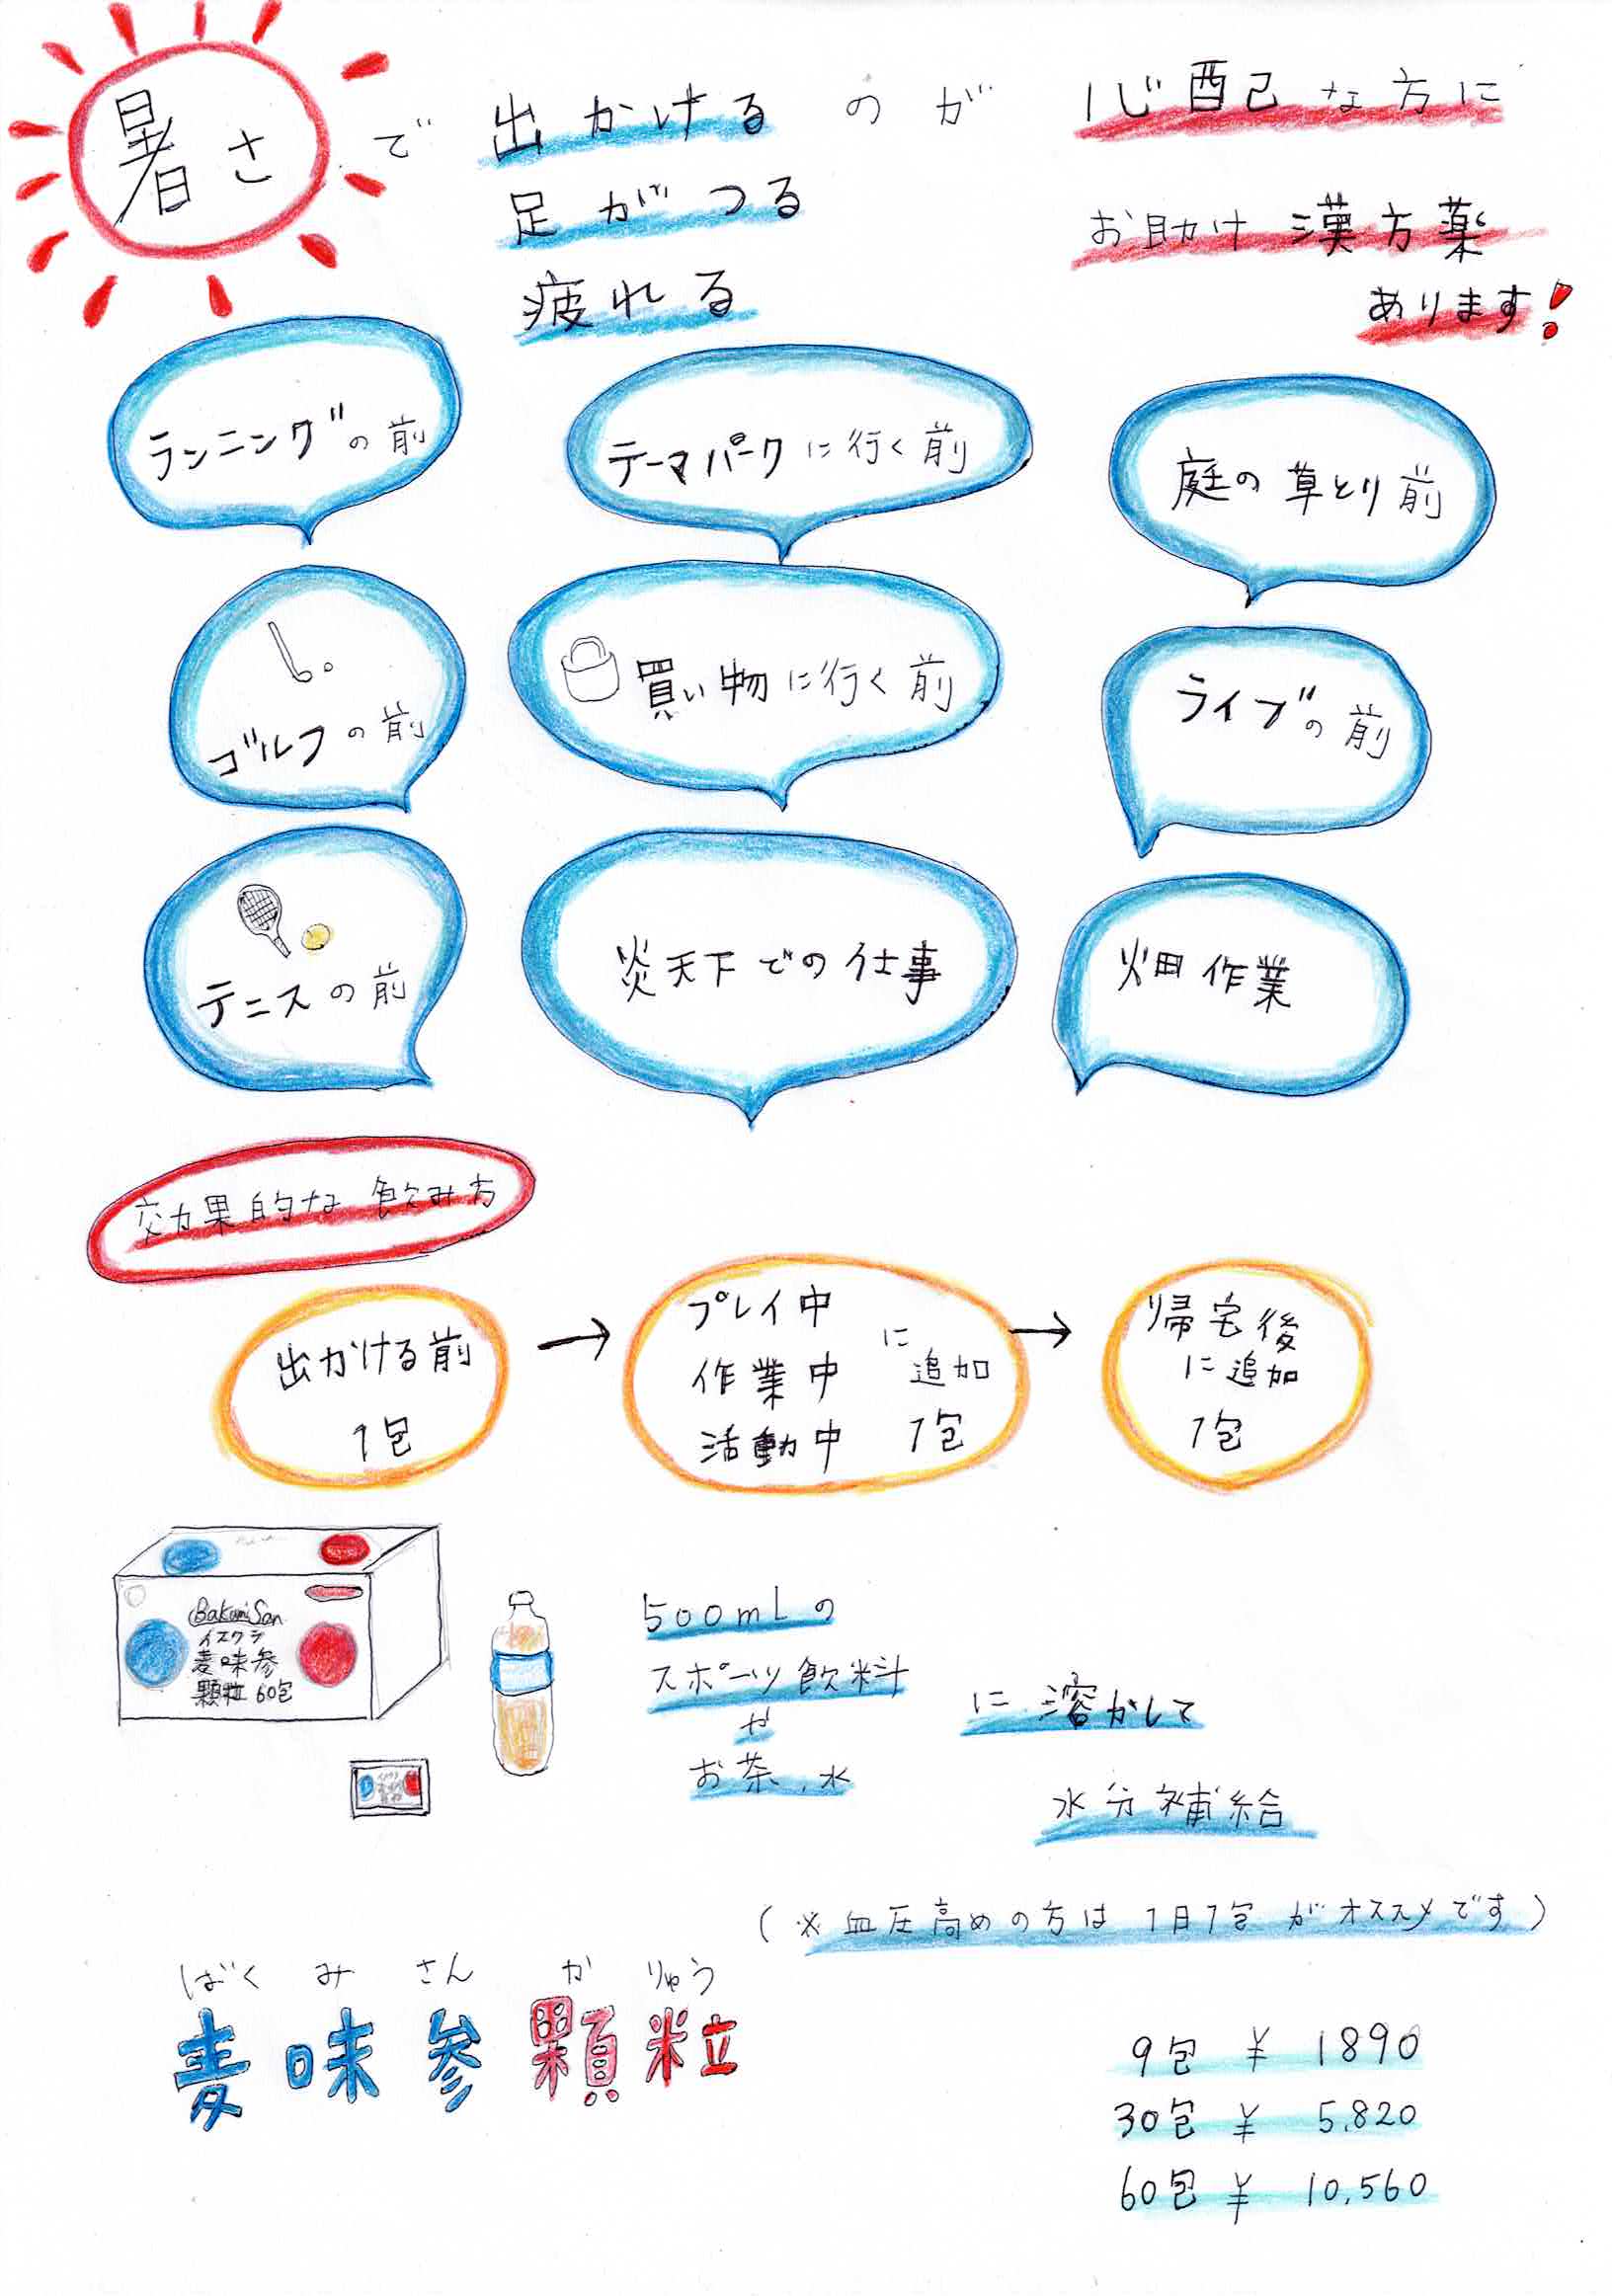 暑さで出かけるのが心配な方に
足がつる
疲れる
お助け漢方薬
あります!
ランニングの前
テーマパークに行く前
庭の草とり前
ゴルフの前
買い物に行く前
ライブの前
テニスの前
炎天下での仕事
畑作業
効果的な飲み方
出かける前
1包
→
プレイ中
作業中
活動中
に
追加
1包
→
帰宅後
に追加
1包
BakumiSan
イスクラ
麦味参
顆粒 60包
500mLの
スポーツ飲料
や
お茶、水
に溶かして
水分補給
(※血圧高めの方は1日1包がオススメです)
ばく み さん か りゅう
麦味参顆粒
9包 ¥ 1890
30包 ¥ 5,820
60包 ¥ 10,560